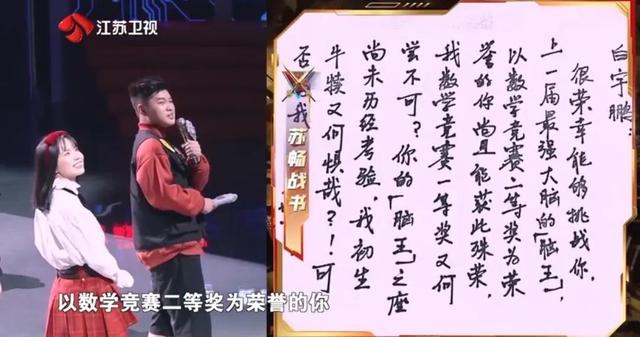 江苏卫视
白宇鹏：
很荣幸能够挑战你，
上一届最强大脑的「脑王」，
以数学竞赛二等奖为荣
誉的你尚且能获此殊荣，
我数学竞赛一等奖又何
尝不可？你的「脑王」之座
尚未历经考验，我初生
牛犊又何惧哉？！可
否 我
苏畅战书
以数学竞赛二等奖为荣誉的你